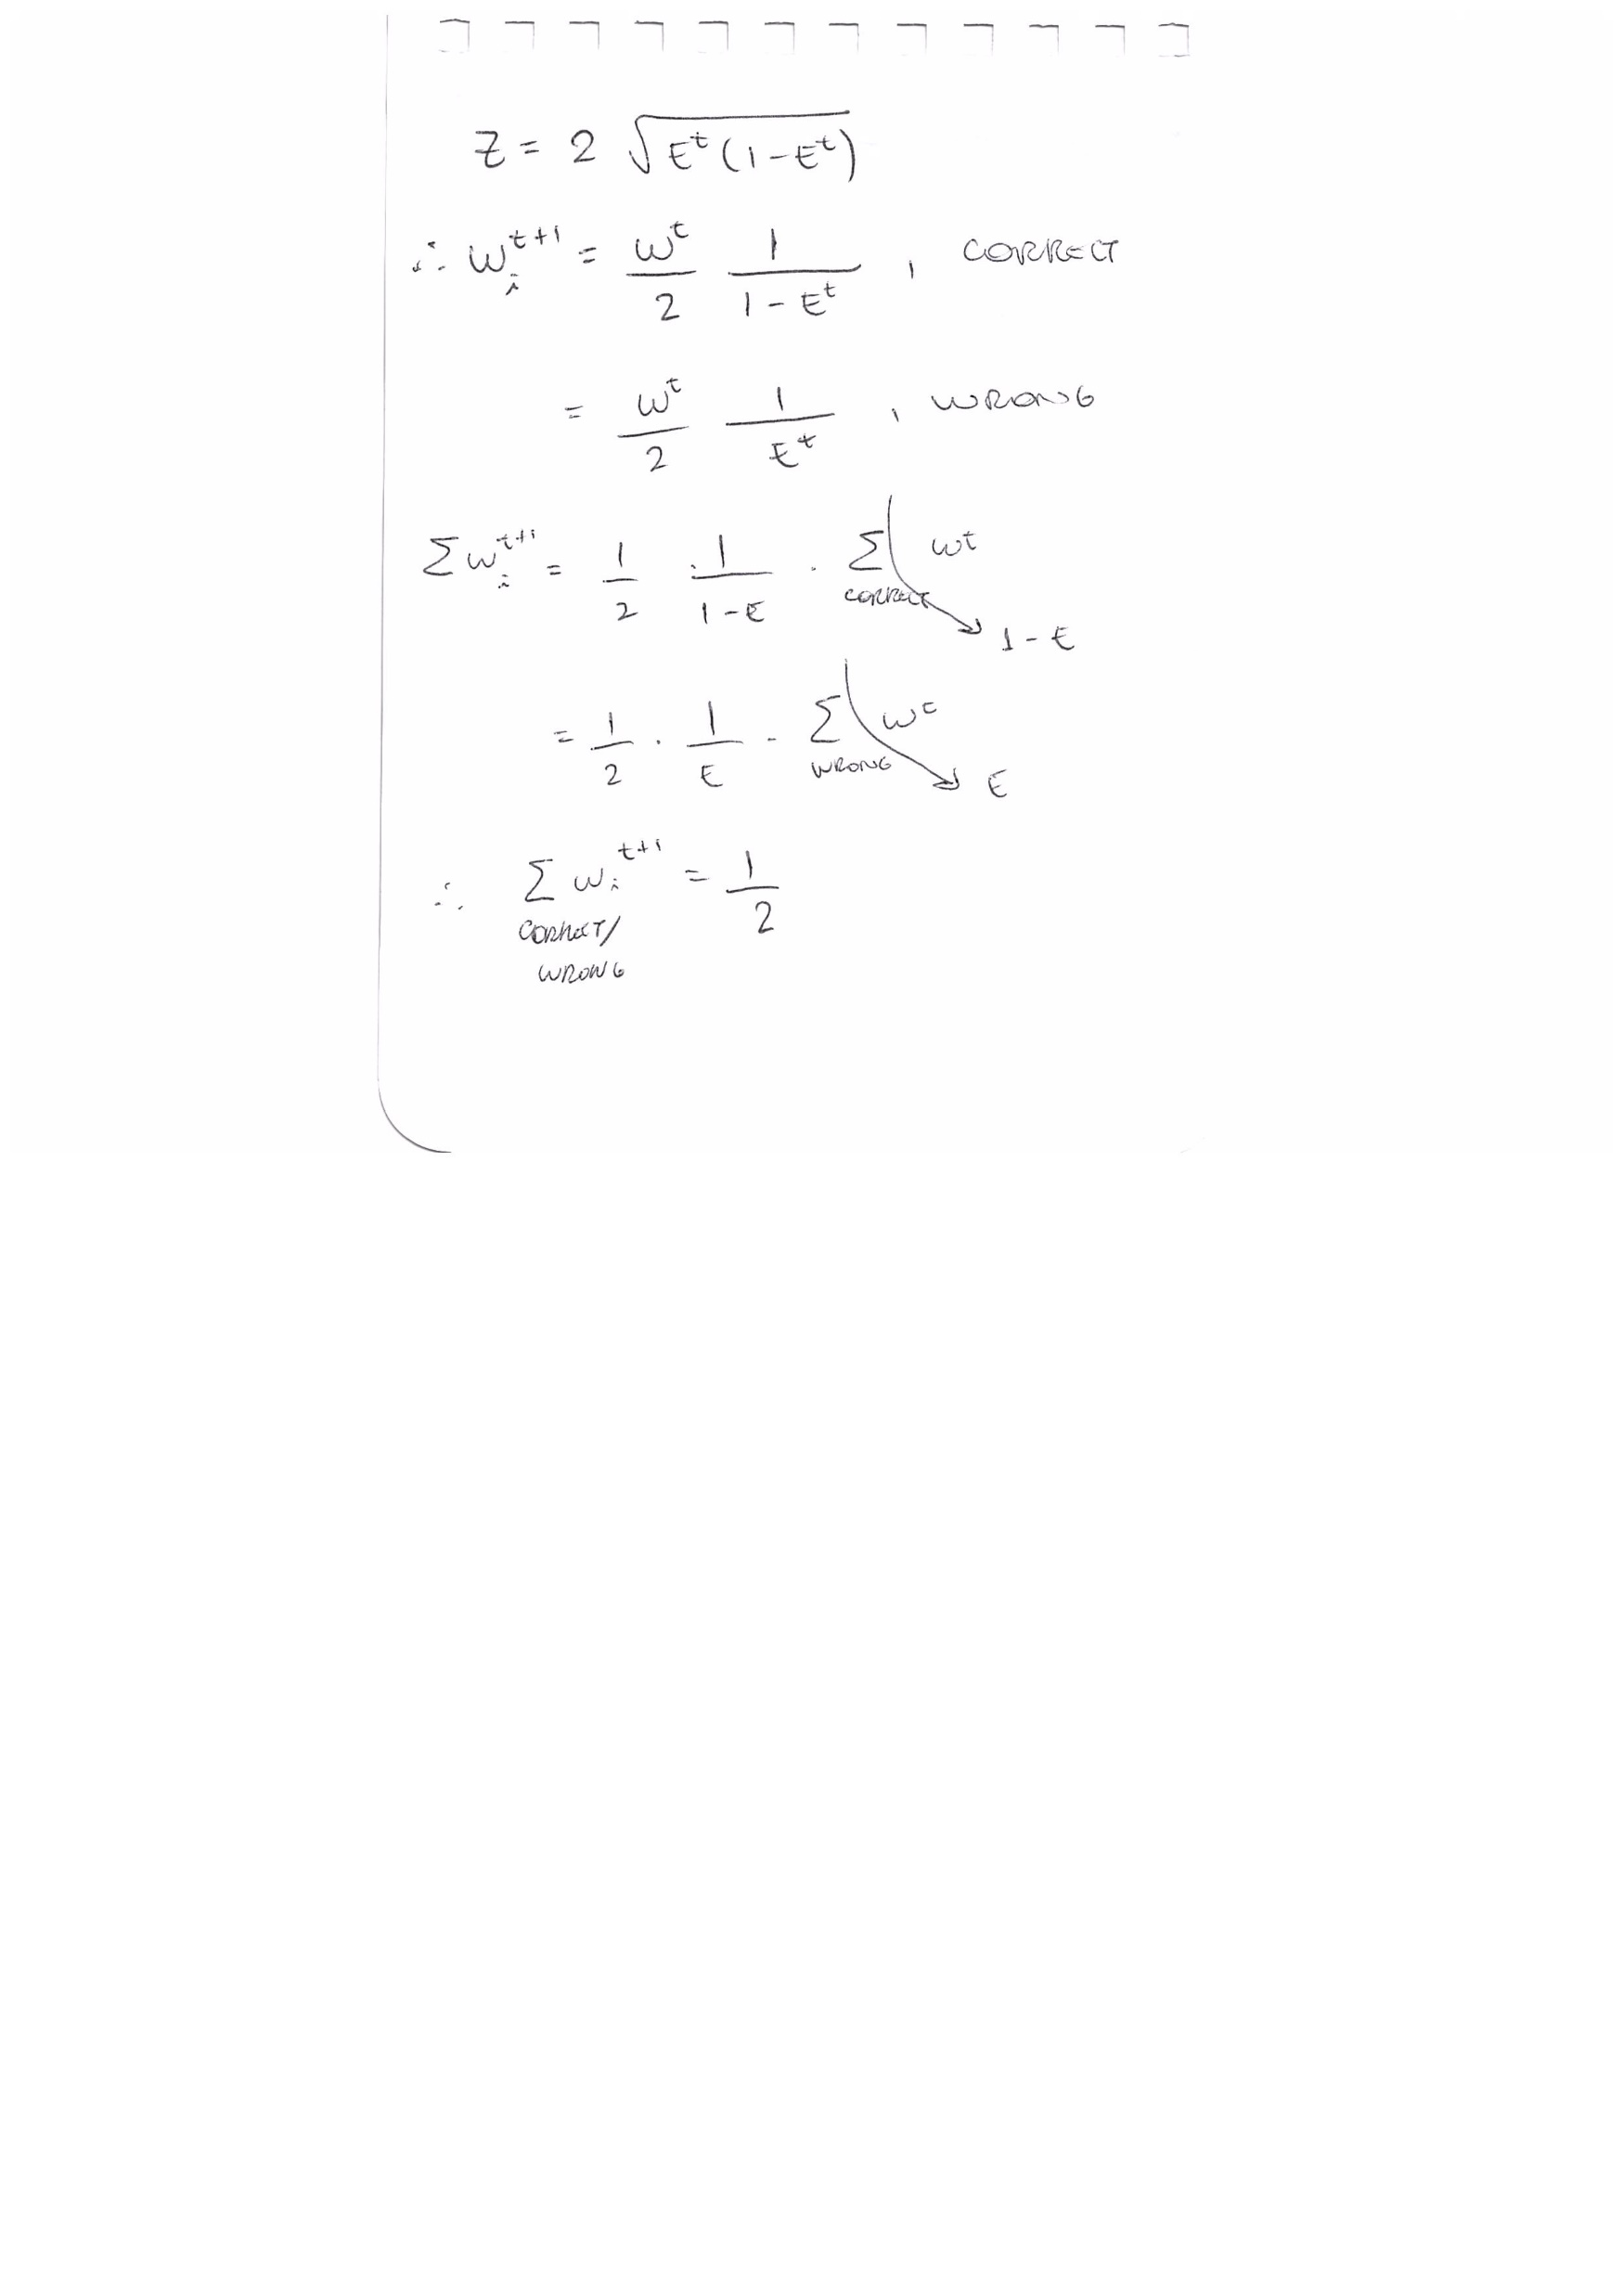 Z = 2 √(E^t (1 - E^t))
∴ w_i^{t+1} = w^t/2 1/(1 - E^t) , CORRECT
= w^t/2 1/E^t , WRONG
Σ w_i^{t+1} = 1/2 · 1/(1-E) · Σ_{CORRECT} w^t → 1 - E
= 1/2 · 1/E · Σ_{WRONG} w^t → E
∴ Σ_{CORRECT/WRONG} w_i^{t+1} = 1/2